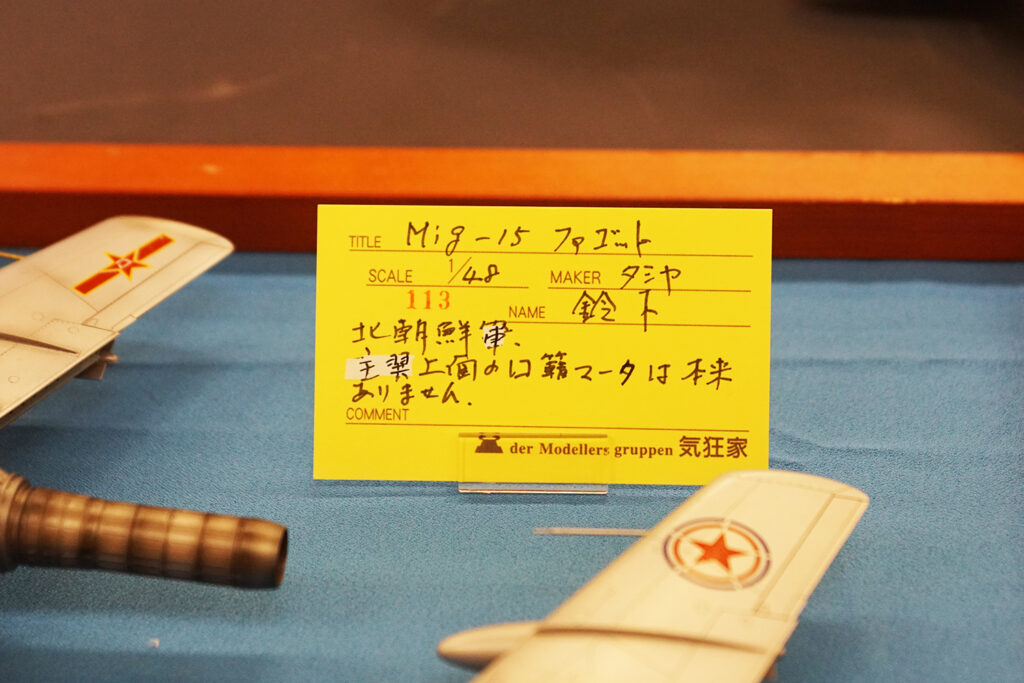 TITLE Mig-15 ファゴット
SCALE 1/48 MAKER タミヤ
113 NAME 鈴木
北朝鮮軍、
主翼上面の国籍マークは本来
ありません.
COMMENT
der Modellers gruppen 気狂家